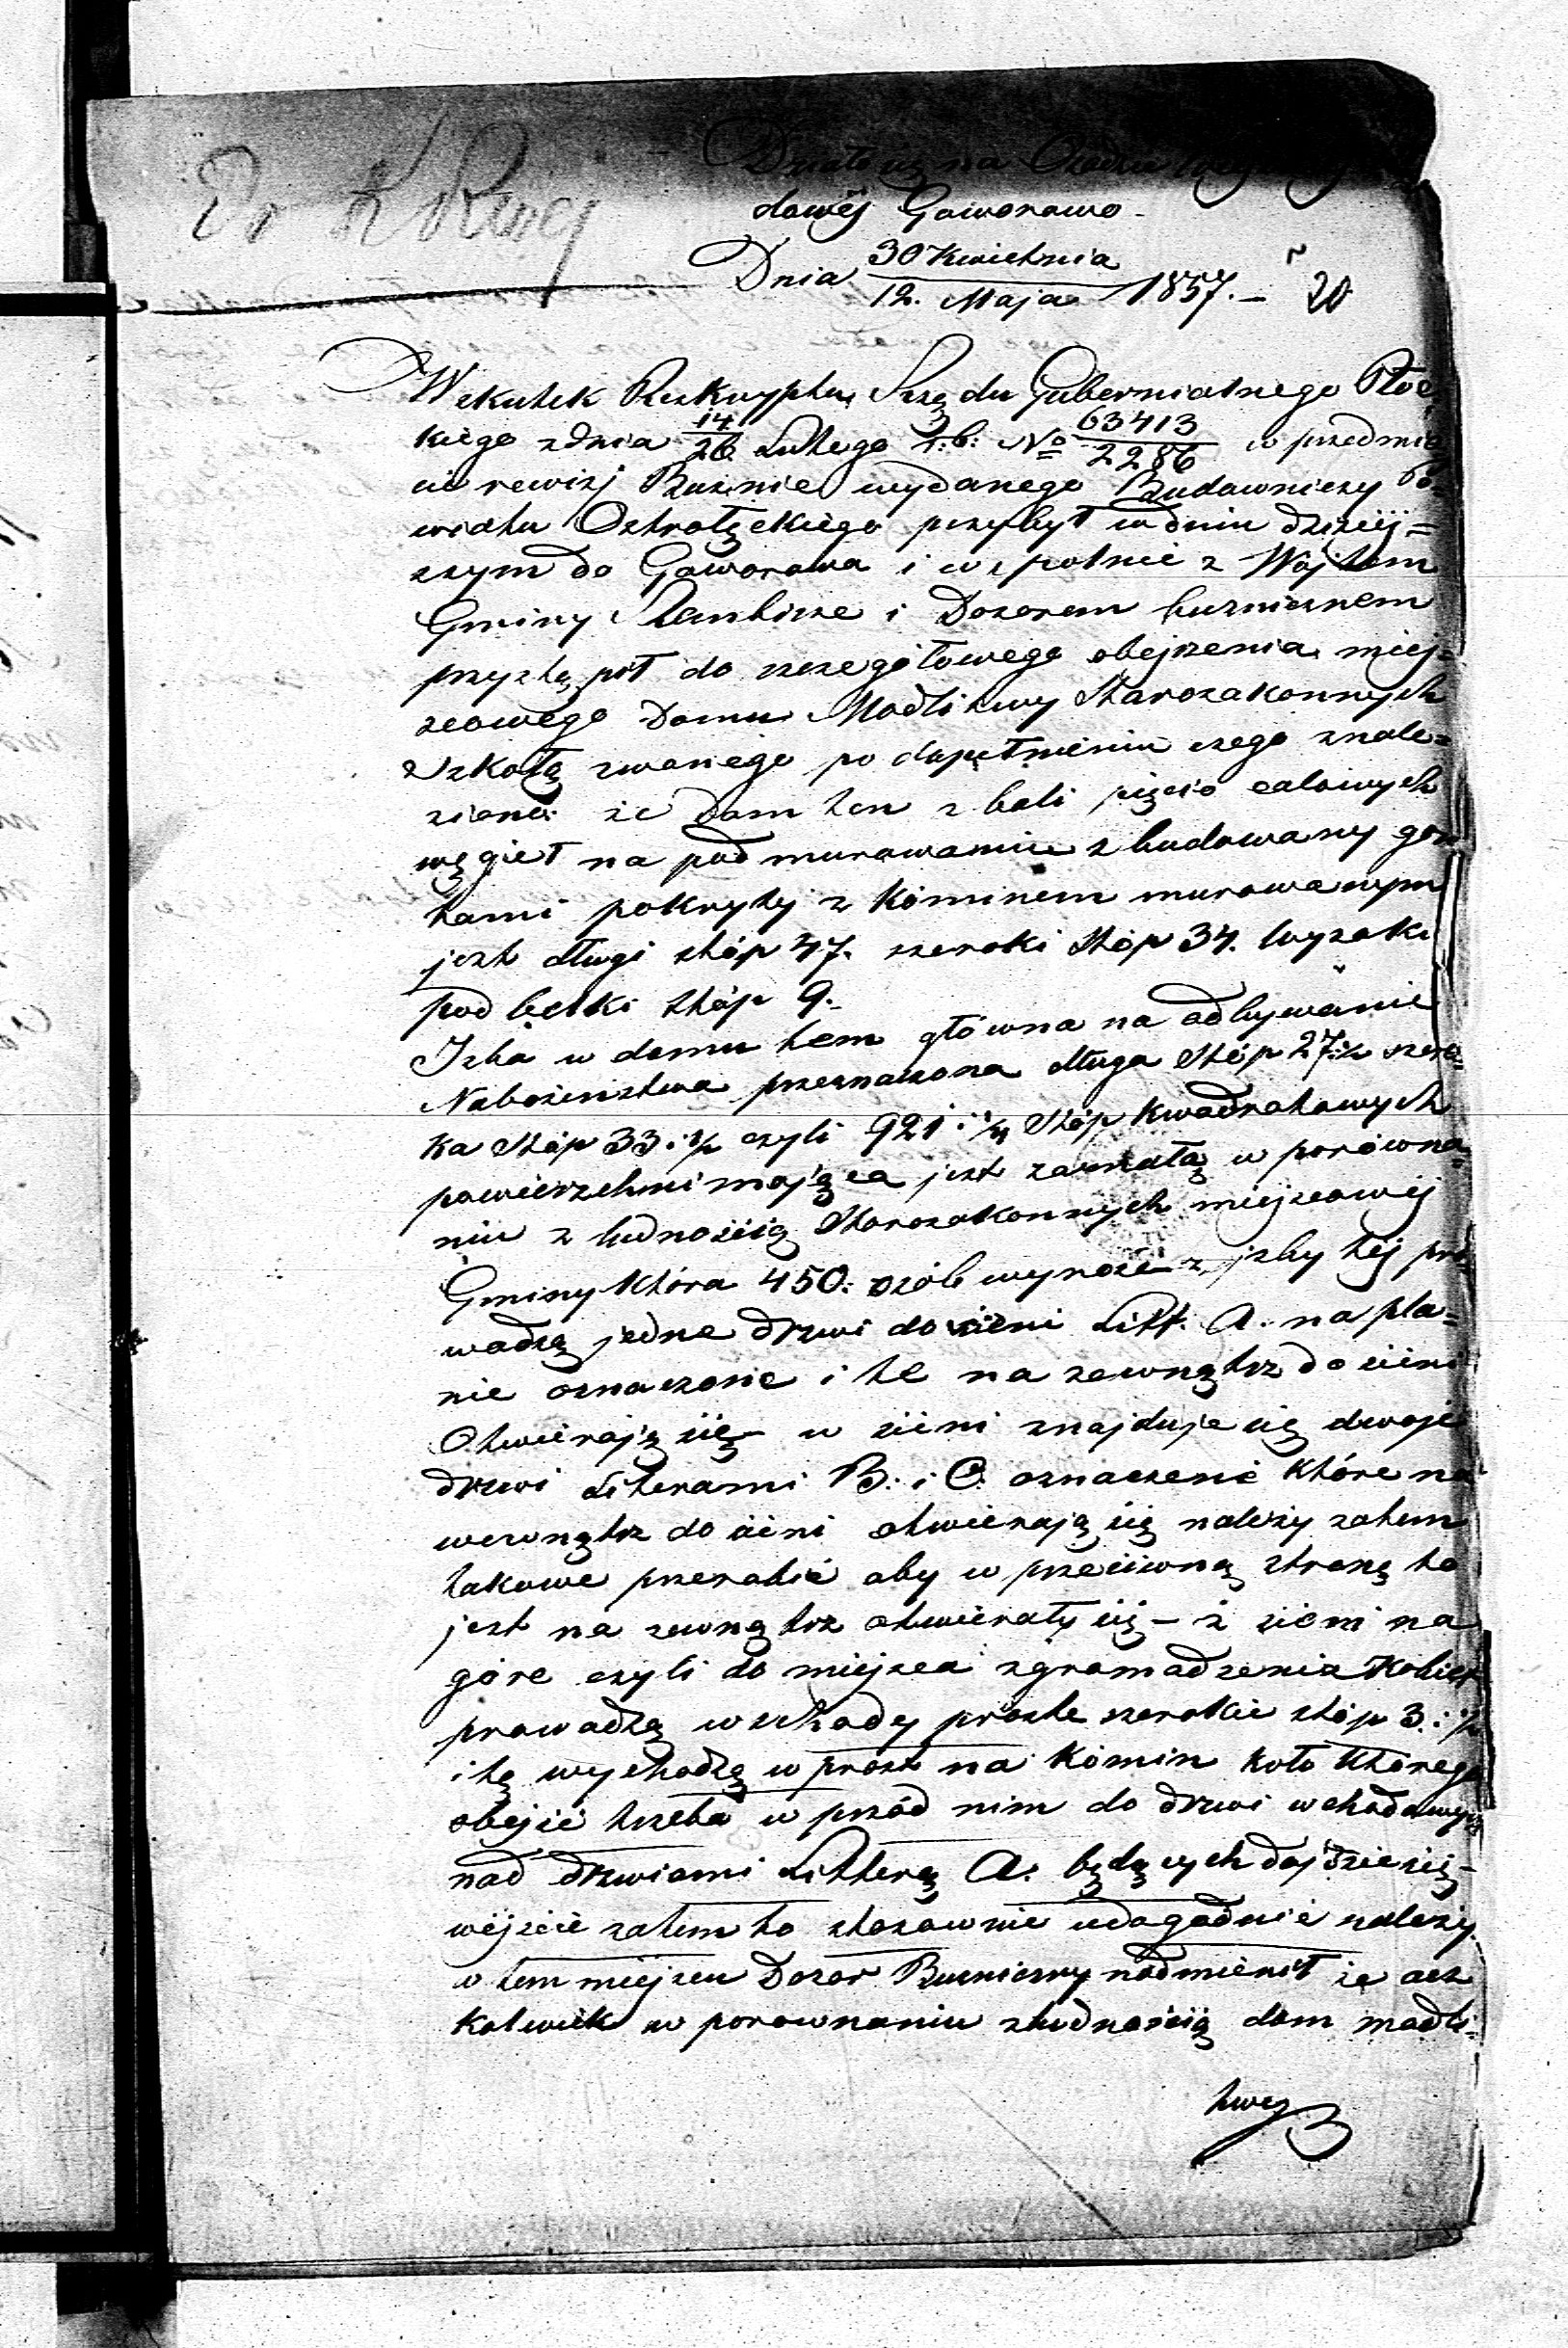 Działo się na Osadzie
dowej Goworowo -
Dnia 30 Kwietnia / 12. Maja 1857. - 20
Wskutek Reskryptu Rządu Gubernialnego Płoc
kiego z dnia 14/26 Lutego r: b: No 63413/2286 w przedmio
cie rewizj Bużnic wydanego Budowniczy Po=
wiatu Ostrołęckiego przybył w dniu dzisiej=
szym do Goworowa i wspolnie z Wójtem
Gminy i Dozorem buzniczem
przystąpił do szczegółowego obejrzenia miej=
scowego Domu Modlitwy Starozakonnych
Szkołą zwanego po dopełnieniu czego znale=
ziono: że Dom ten z bali pięcio calowych
węgieł na podmurowaniu zbudowany gon
tami pokryty z kominem murowanym
jest długi stóp 47. szeroki Stóp 34. wysoki
pod belki stóp 9.
Izba w domu tem główna na odbywanie
Nabożeństwa przeznaczona długa Stóp 27:½ szero=
ka Stóp 33:½ czyli 921:¼ Stóp kwadratowych
powierzchni mająca jest zamałą w porówna=
niu z ludnością Starozakonnych miejscowej
Gminy która 450: osób wynosi - z jzby tej pro
wadzą jedne drzwi do sieni Litt. A. na pla=
nie oznaczone i te na zewnątrz do sieni
Otwierają się - w sieni znajduje się dwoje
drzwi Literami B: i C: oznaczone które na
wewnątrz do sieni otwierają się należy zatem
takowe przerobić aby w przeciwną stronę to
jest na zewnątrz otwierały się - z sieni na
góre czyli do miejsca zgromadzenia Kobiet
prowadzą wschody proste szerokie stóp 3:½
i te wychodzą w prost na komin koło którego
obejść trzeba w przód nim do drzwi wchodowych
nad drzwiami Litterą A: będących dojdzie się -
wejście zatem to stosownie udogodnić należy.
w tem miejscu Dozor Buzniczny nadmienił że acz
kolwiek w porownaniu z ludnością dom modli=
twy